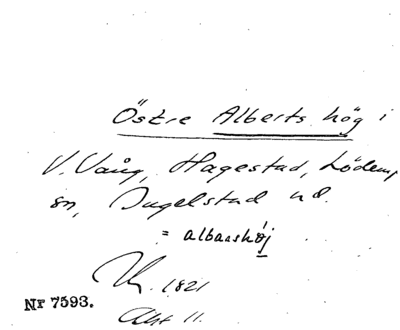 Östre Alberts hög i
V. Vång, Hagestad, Löderup
sn, Ingelstad hd.
= albaashöj
1821
Akt 11.
Nr 7593.